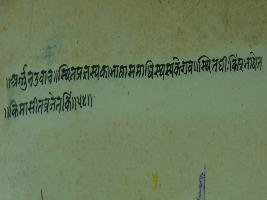 ॥अर्जुन उवाच॥स्थितप्रज्ञस्य का भाषा समाधिस्थस्य केशव॥स्थितधीः किं प्रभाषेत
॥किमासीत व्रजेत किं॥५४॥